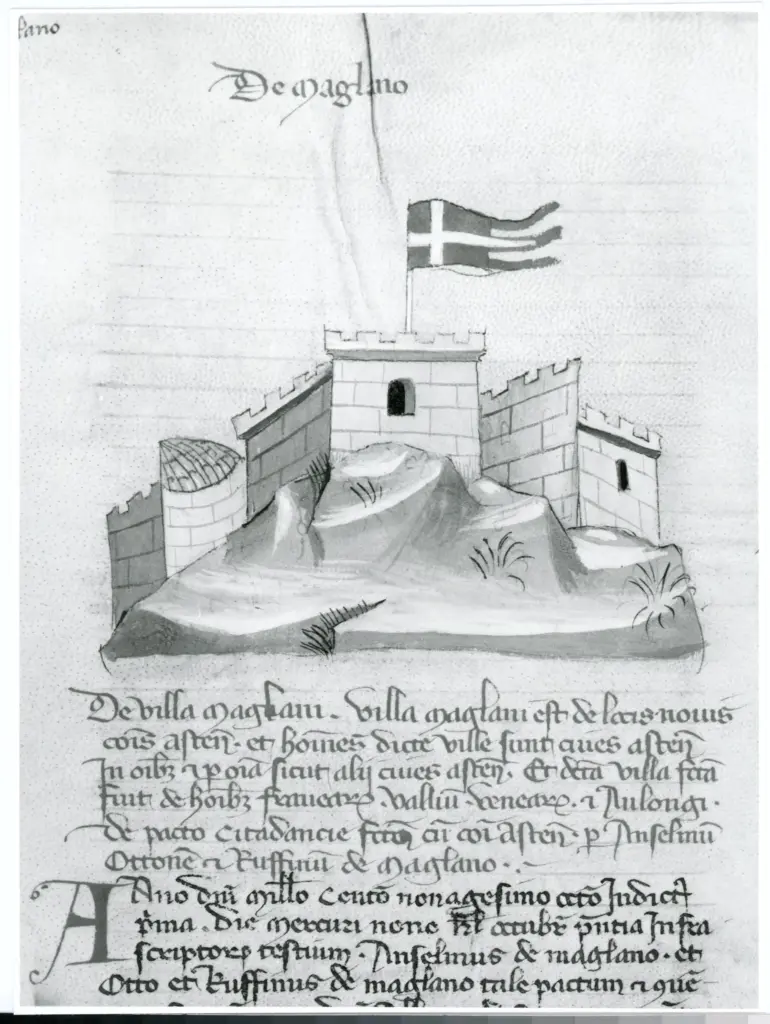 lano
De maglano
De villa maglani. Villa maglani est de locis nouis
cois asten. et hoines dicte ville sunt ciues asten
In oibz z p oia sicut alij ciues asten. Et dcta villa fcta
fuit de hoibz francarz. vallium. venearz. z Aulongi.
de pacto Citadancie fcto cu coi Asten. p Anselmu
Ottone z Ruffinu de maglano.
Ano dni millo Cento nonagesimo octo Indict
pma. Die mercuri nono kl octubr pntia Infra
scriptorz testium. Anselmus de maglano. et
Otto et Ruffinus de maglano tale pactum z que